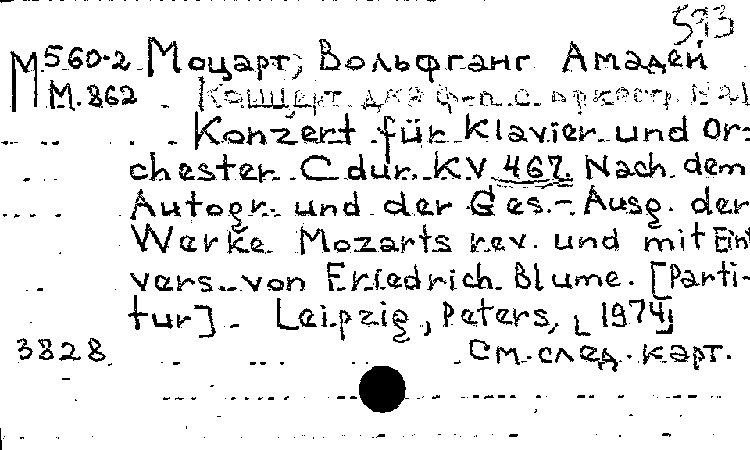 593
М560-2 Моцарт, Вольфганг Амадей
М.862 Концерт для ф-п. с. оркестр. №21
Konzert für Klavier und Or=
chester C dur. KV 467. Nach dem
Autogr. und der Ges.-Ausg. der
Werke Mozarts rev. und mit Einf
vers. von Friedrich Blume. [Parti-
tur]. Leipzig, Peters, [1974]
3828 См. след. карт.